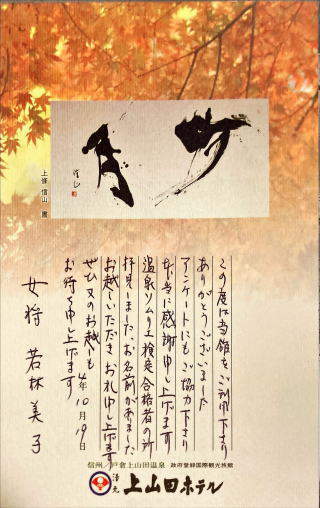 上條 信山 書
この度は当館をご利用下さり
ありがとうございました
アンケートにもご協力下さり
本当に感謝申し上げます
温泉ソムリエ検定合格者の所
拝見しました、お名前がありました
お越しいただきお礼申し上げます
ぜひ又のお越しを
お待ち申し上げます
4年10月19日
女将 若林美子
信州/戸倉上山田温泉 政府登録国際観光旅館
湯元 上山田ホテル